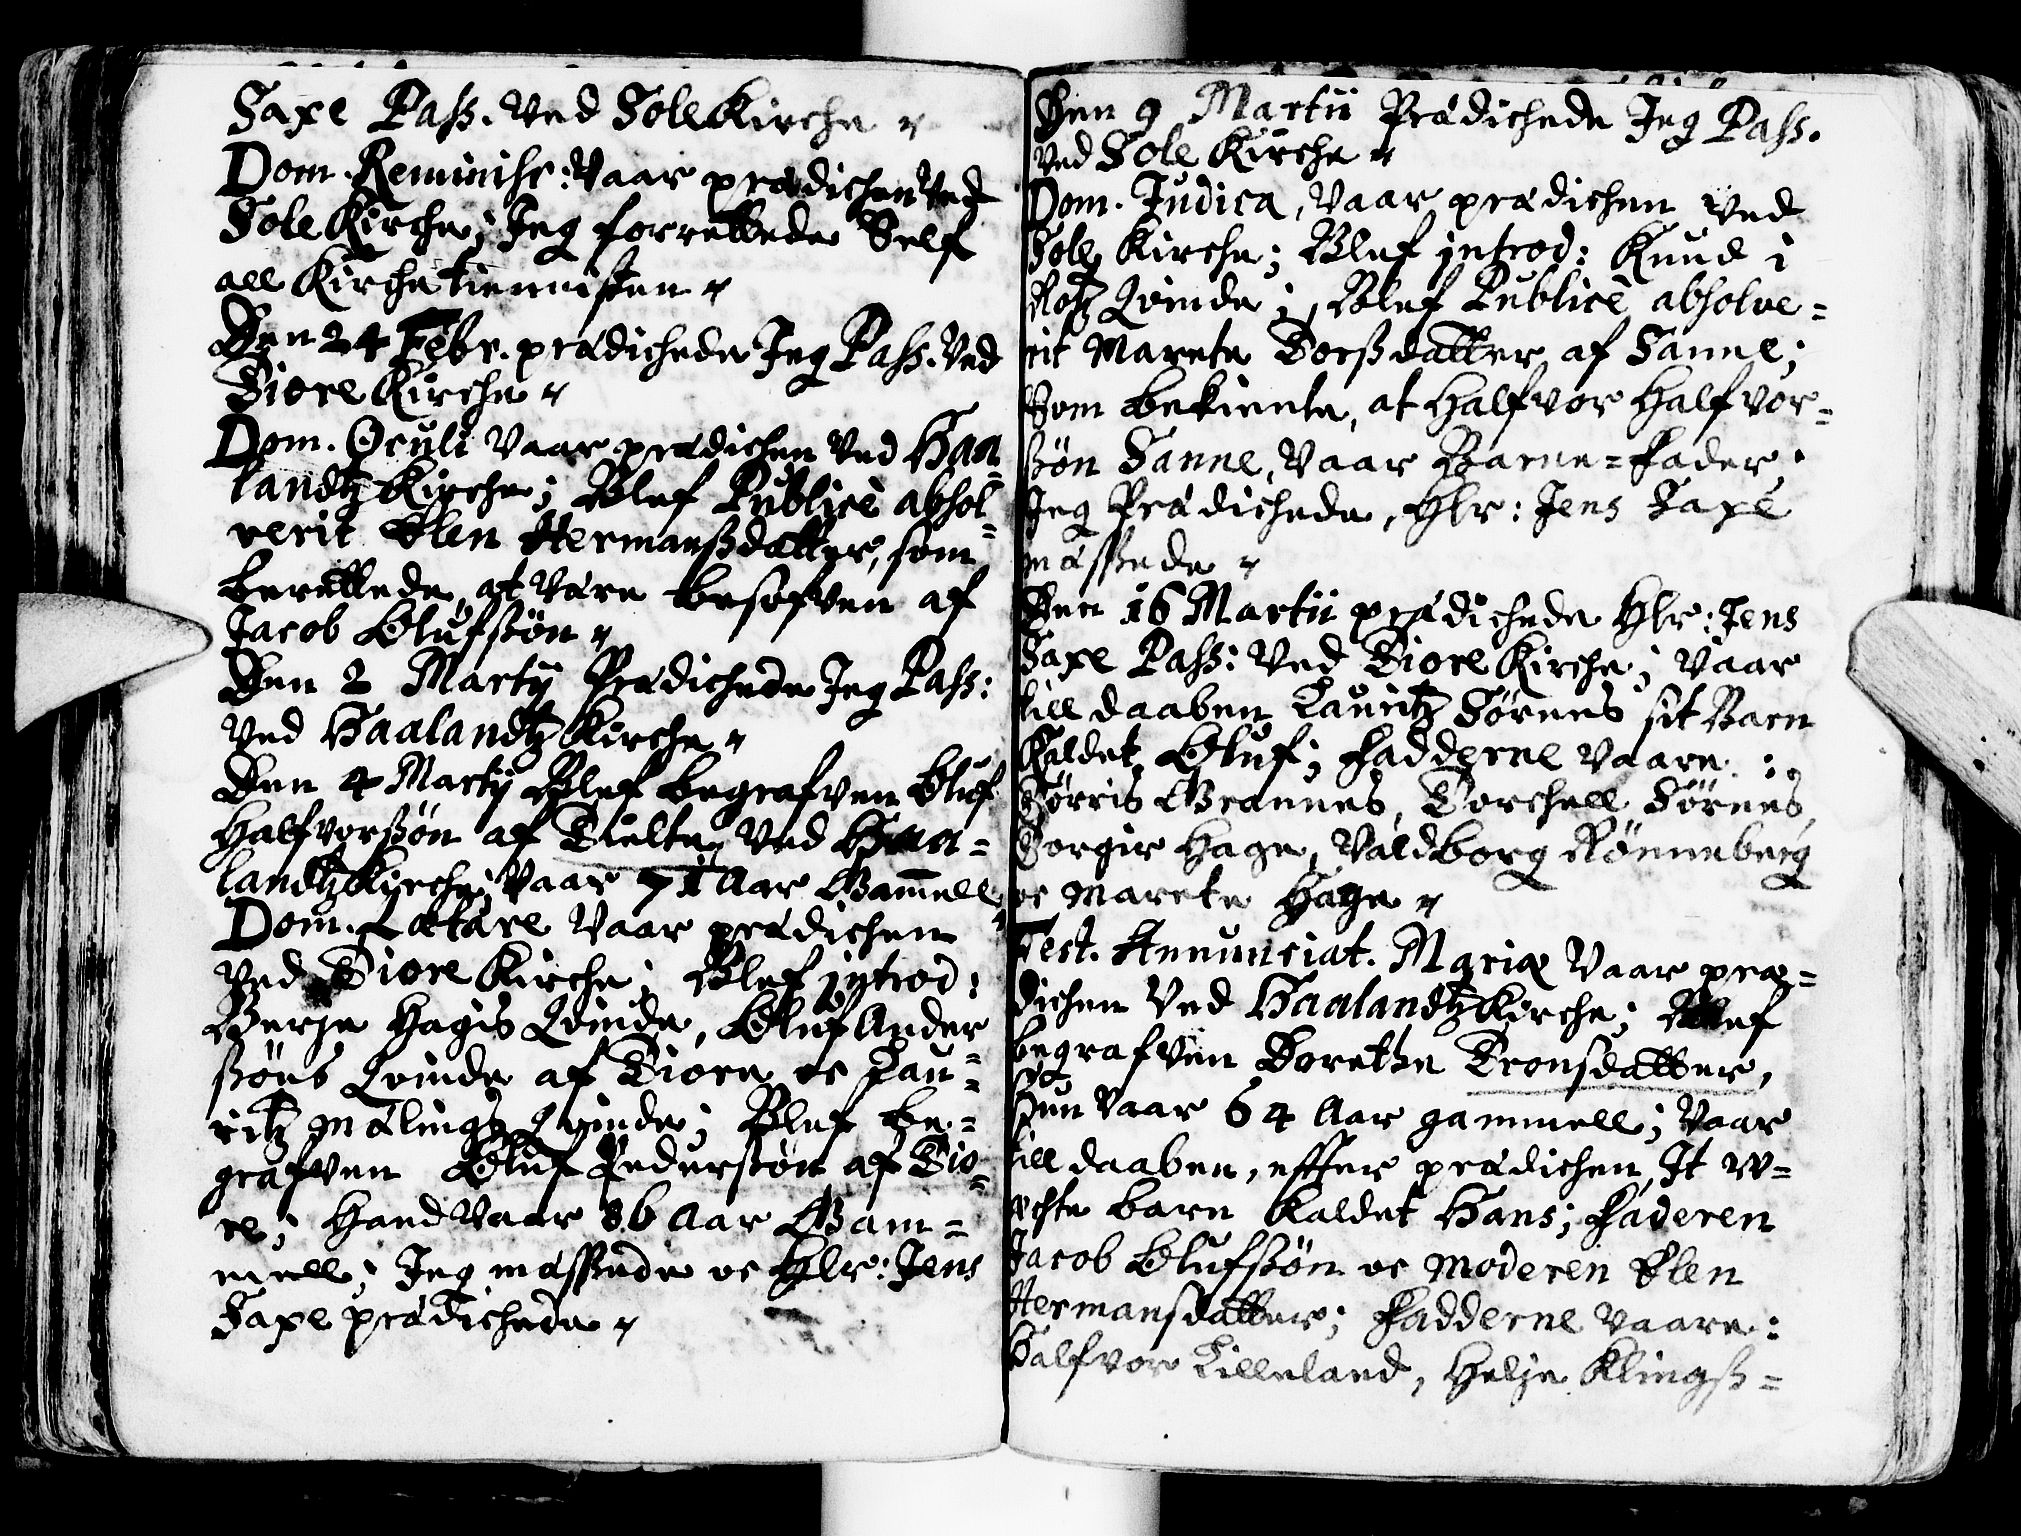 Saxe Pass. Ved Sole Kirche
Dom. Reminisc: Vaar prædichen Ved
Sole Kirche; Jeg forrettede Self
all Kirche tiennisten
Den 24 Febr. prædichede Jeg Pass. Ved
Tiore Kirche
Dom. Oculi Vaar prædichen Ved Haa
landtz Kirche; Blef Publicè absol-
verit Elen Hermanßdatter, som
berettede at Være besofven af
Jacob Olufsøn
Den 2 Martij Prædichede Jeg Pass:
Ved Haalandtz Kirche
Den 4 Martij Blef begrafven Oluf
Halfvorßøn af Tielte Ved Haa-
landtz Kirche; Vaar 71 Aar Gam̄ell
Dom. Lætare Vaar prædichen
Ved Tiore Kirche; Blef introd:
Berje Hagis Qvinde, Oluf Ander
ßøns Qvinde af Tiore oc Lau-
ritz Mælings Qvinde; Blef be-
grafven Oluf Pederßøn af Tio-
re; Hand Vaar 86 Aar Gam-
mell; Jeg mæssede oc Hlr: Jens
Saxe prædichede
Den 9 Martii Prædichede Jeg Pass.
Ved Sole Kirche
Dom. Judica, Vaar prædichen Ved
Sole Kirche; Blef introd: Knud i
Qvinde; Blef Publicè absolve-
rit Marete Torßdatter af Sanne;
Som bekiente, at Halfvor Halfvor-
ßøn Sanne, Vaar Barne-Fader;
Jeg Prædichede, Hlr: Jens Saxe
mæssede
Den 16 Martii prædichede Hlr: Jens
Saxe Pass: Ved Tiore Kirche; Vaar
till daaben Lauritz Sørnes sit Barn
Kaldet Oluf; Fadderne Vaare:
Børris Grannes, Torchell Sørnes,
Torgir Hage, Valdborg Rønneberg
oc Marete Hage
Fest. Annunciat. Mariæ Vaar præ-
dichen Ved Haalandtz Kirche; Blef
begrafven Dorethe Tronsdatter,
Hun Vaar 64 Aar gammell; Vaar
till daaben, effter prædichen, It w-
echte barn kaldet Hans; Faderen
Jacob Olufsøn oc Moderen Elen
Hermansdatter; Fadderne Vaare:
Halfvor Lilleland, Helje Klingß-